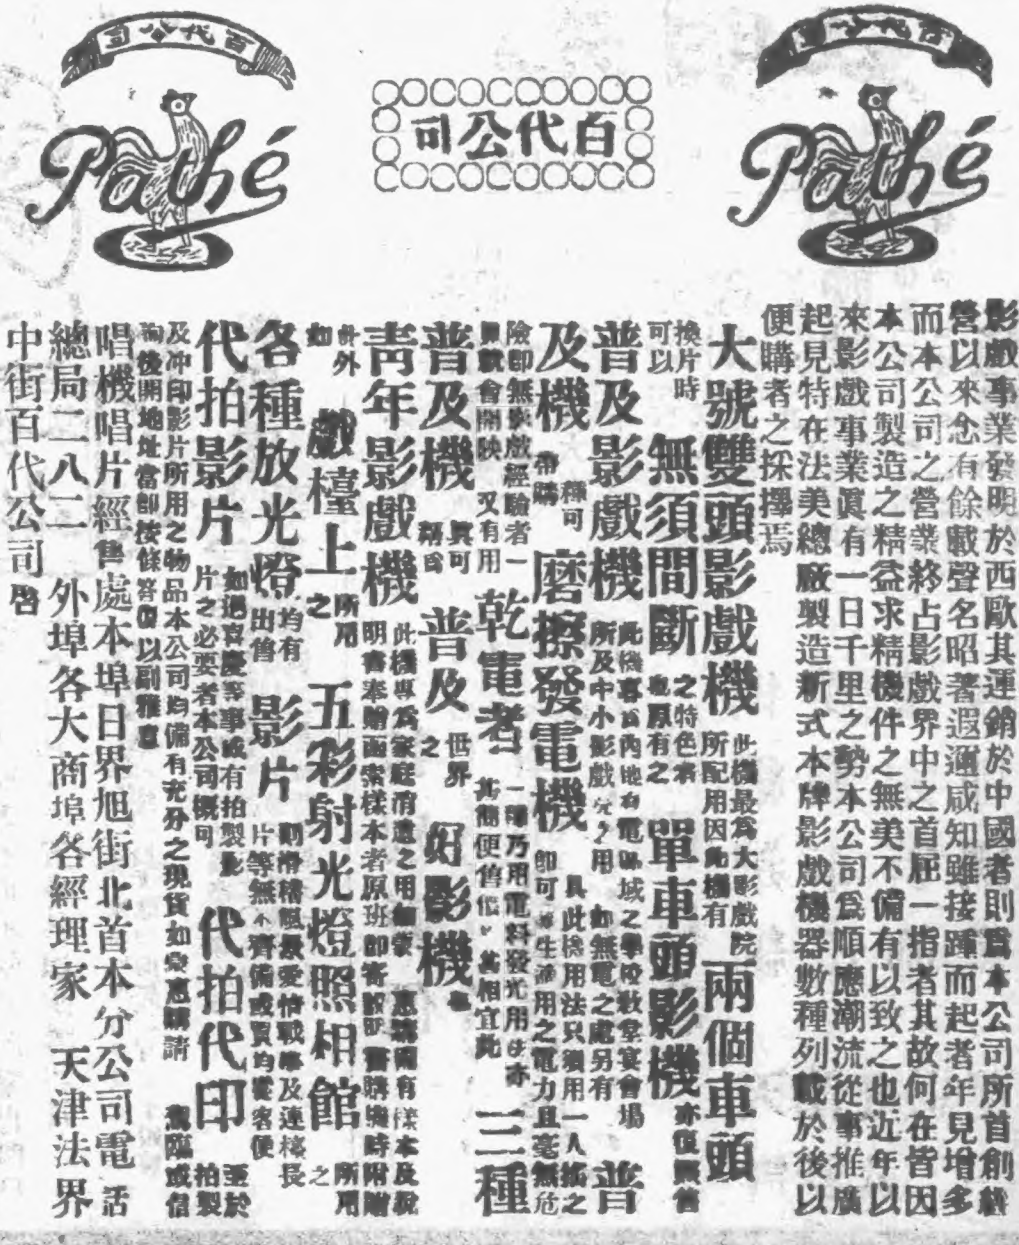 百代公司
Pathé
百代公司
百代公司
Pathé
影戲事業發明於西歐其運銷於中國者則爲本公司所首創繼
營以來念有餘載聲名昭著遐邇咸知雖接踵而起者年見增多
而本公司之營業終占影戲界中之首屈一指者其故何在皆因
本公司製造之精益求精機件之無美不備有以致之也近年以
來影戲事業眞有一日千里之勢本公司爲順應潮流從事推廣
起見特在法美總廠製造新式本牌影戲機器數種列載於後以
便購者之採擇焉
大號雙頭影戲機 此機最爲大影戲院所配用因此機有 兩個車頭
換片時可以 無須間斷 之特色本原有之 單車頭影機 亦復照售
普及影戲機 此機專爲內地有電區域之學校教堂宴會場所及中小影戲院之用 如無電之處另有 普
及機 種可帶購 磨擦發電機 具此機用法只須用一人搖之即可發生適用之電力且毫無危
險即無影戲經驗者一就會開映 又有用 乾電者 一種乃用電料發光用法亦甚簡便售價甚相宜此 三種
普及機 眞可稱爲 普及 世界之 好影機
青年影戲機 此機專爲家庭消遣之用備有樣本及說明書奉贈函索樣本者原班即寄說明書購機時附贈
此外如 戲檯上 所用之 五彩射光燈照相館 所用之
各種放光燈 均有出售 影片 則滑稽風景愛情戰爭及連檯長片等無不齊備或買均從客便
代拍影片 如遇喜慶等事或有拍製影片之必要者本公司概可 代拍代印 至於拍製
及冲印影片所用之物品本公司均備有充分之現貨如蒙惠購請 駕臨或信
詢後開地址當即按條答復以副雅意
唱機唱片經售處本埠日界旭街北首本分公司電話
總局二八二 外埠各大商埠各經理家 天津法界
中街百代公司啓